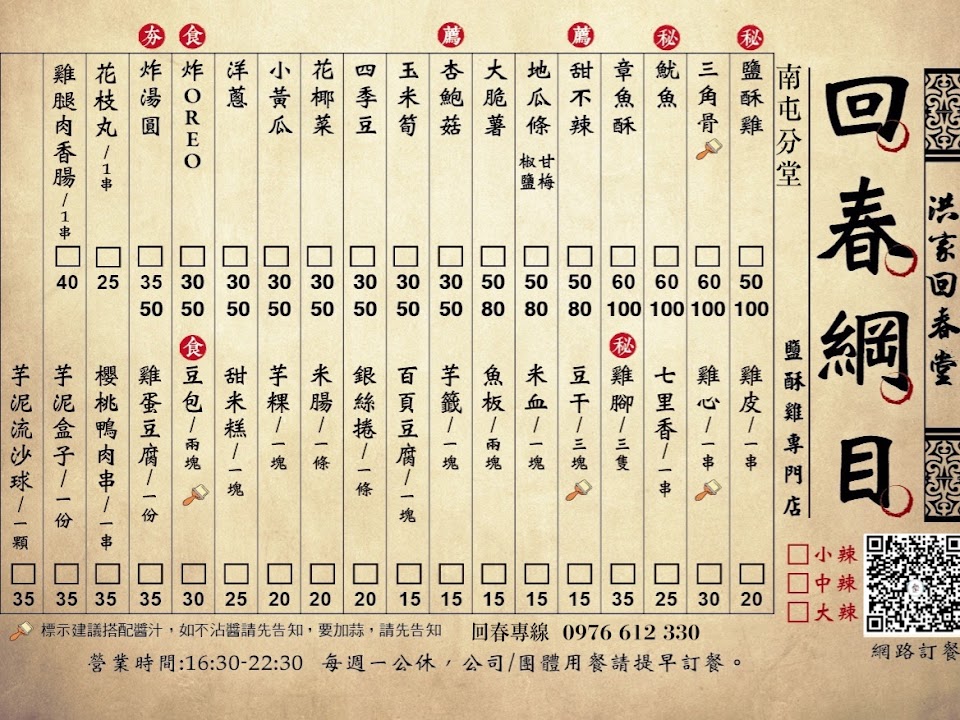 洪家回春堂
回春綱目
南屯分堂
鹽酥雞專門店
小辣
中辣
大辣
網路訂餐
秘 鹽酥雞 50 100
三角骨 60 100
秘 魷魚 60 100
章魚酥 60 100
薦 甜不辣 50 80
地瓜條 椒鹽 甘梅 50 80
大脆薯 50 80
薦 杏鮑菇 30 50
玉米筍 30 50
四季豆 30 50
花椰菜 30 50
小黃瓜 30 50
洋蔥 30 50
食 炸OREO 30 50
夯 炸湯圓 35 50
花枝丸/1串 25
雞腿肉香腸/1串 40
雞皮/一串 20
雞心/一串 30
七里香/一串 25
秘 雞腳/三隻 35
豆干/三塊 15
米血/一塊 15
魚板/兩塊 15
芋籤/一塊 15
百頁豆腐/一塊 15
銀絲捲/一條 20
米腸/一條 20
芋粿/一塊 20
甜米糕/一塊 25
食 豆包/兩塊 30
雞蛋豆腐/一份 35
櫻桃鴨肉串/一串 35
芋泥盒子/一份 35
芋泥流沙球/一顆 35
標示建議搭配醬汁，如不沾醬請先告知，要加蒜，請先告知
回春專線 0976 612 330
營業時間:16:30-22:30 每週一公休，公司/團體用餐請提早訂餐。